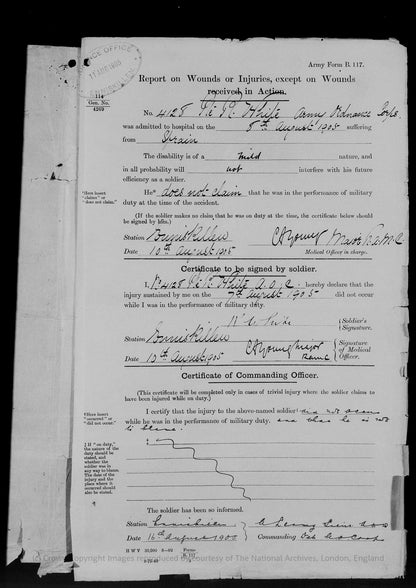 OFFICE
11 AUG 1905
114
Gen. No.
4209
Army Form B. 117.
Report on Wounds or Injuries, except on Wounds
received in Action.
No. 4128 Pte W. White Army Ordnance Corps
was admitted to hospital on the 8th August 1905 suffering
from Sprain
The disability is of a mild nature, and
in all probability will not interfere with his future
efficiency as a soldier.
*Here insert "claims" or "does not claim."
He* does not claim that he was in the performance of military
duty at the time of the accident.
(If the soldier makes no claim that he was on duty at the time, the certificate below should
be signed by him.)
Station Enniskillen
C Young Major R.A.M.C
Date 10th August 1905
Medical Officer in charge.
Certificate to be signed by soldier.
I, No 4128 Pte W. White A.O.C. hereby declare that the
injury sustained by me on the 7th August 1905 did not occur
while I was in the performance of military duty.
W White
Soldier's Signature.
Station Enniskillen
C Young Major RAMC
Signature of Medical Officer.
Date 10th August 1905
Certificate of Commanding Officer.
(This certificate will be completed only in cases of trivial injury where the soldier claims to
have been injured while on duty.)
†Here insert "occurred" or "did not occur."
I certify that the injury to the above-named soldier† did not occur
while he was in the performance of military duty. and that he is not
to blame.
‡ If "on duty," the nature of the duty should be stated, and whether the soldier was in any way to blame. The date of the injury and the place where it occurred should also be stated.
The soldier has been so informed.
Station Enniskillen
Date 16th August 1905
Commanding
H W V 30,000 8—02
Forms B. 117
Copyright images reproduced by courtesy of The National Archives, London, England